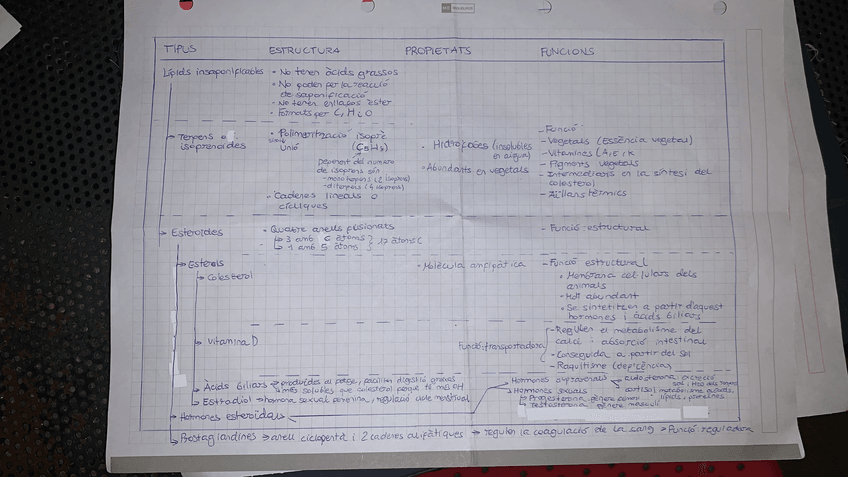 TIPUS ESTRUCTURA PROPIETATS FUNCIONS
Lípids insaponificables
• No tenen àcids grassos
• No poden fer la reacció
de saponificació
• No tenen enllaços èster
• Formats per C, H i O
→ Terpens o
isoprenoides
• Polimerització isoprè
unió (C5H8)
Depenent del número
de isoprens són
- monoterpens (2 isoprens)
- diterpens (4 isoprens)
• Cadenes lineals o
cícliques
• Hidròfobes (insolubles
en aigua)
• Abundants en vegetals
- Funció
- Vegetals (Essència vegetal)
- Vitamines (A, E i K
- Pigments vegetals
- Intermediaris en la síntesi del
colesterol
- Aïllans tèrmics
→ Esteroides
• Quatre anells fusionats
↳ 3 amb 6 àtoms
↳ 1 amb 5 àtoms
} 17 àtoms C
- Funció estructural
→ Esterols
→ Colesterol
• Molècula amfipàtica
- Funció estructural
• Membrana cel·lulars dels
animals
• Molt abundant
• Se sintetitzen a partir d'aquest
hormones i àcids biliars
→ Vitamina D
Funció: transportadora
- Regulen el metabolisme del
calci : absorció intestinal
- Conseguida a partir del sol
- Raquitisme (deficiència)
→ Àcids biliars → produïdes al fetge, faciliten digestió grasses
més solubles que colesterol perquè té més OH
→ Estradiol → hormona sexual femenina, regulació cicle menstrual
→ Hormones esteroidals
- Hormones suprarenals
aldosterona
cortisol
- Hormones sexuals
→ Progesterona gènere femení
→ Testosterona gènere masculí
lípids, proteïnes
→ Prostaglandines → anell ciclopentà i 2 cadenes alifàtiques → regulen la coagulació de la sang → Funció reguladora